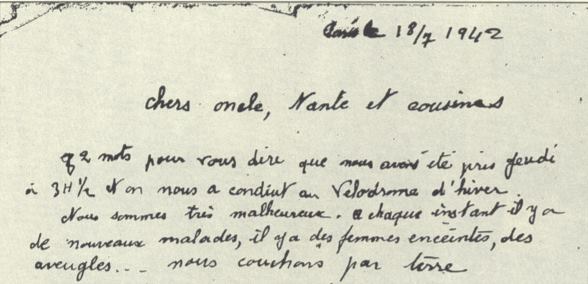 Paris le 18/7 1942
chers oncle, Tante et cousines
q q mots pour vous dire que nous avons été pris Jeudi
à 3H 1/2 et on nous a conduit au Vélodrome d'hiver.
Nous sommes très malheureux. a chaque instant il y a
de nouveaux malades, il y a des femmes enceintes, des
aveugles... nous couchons par terre